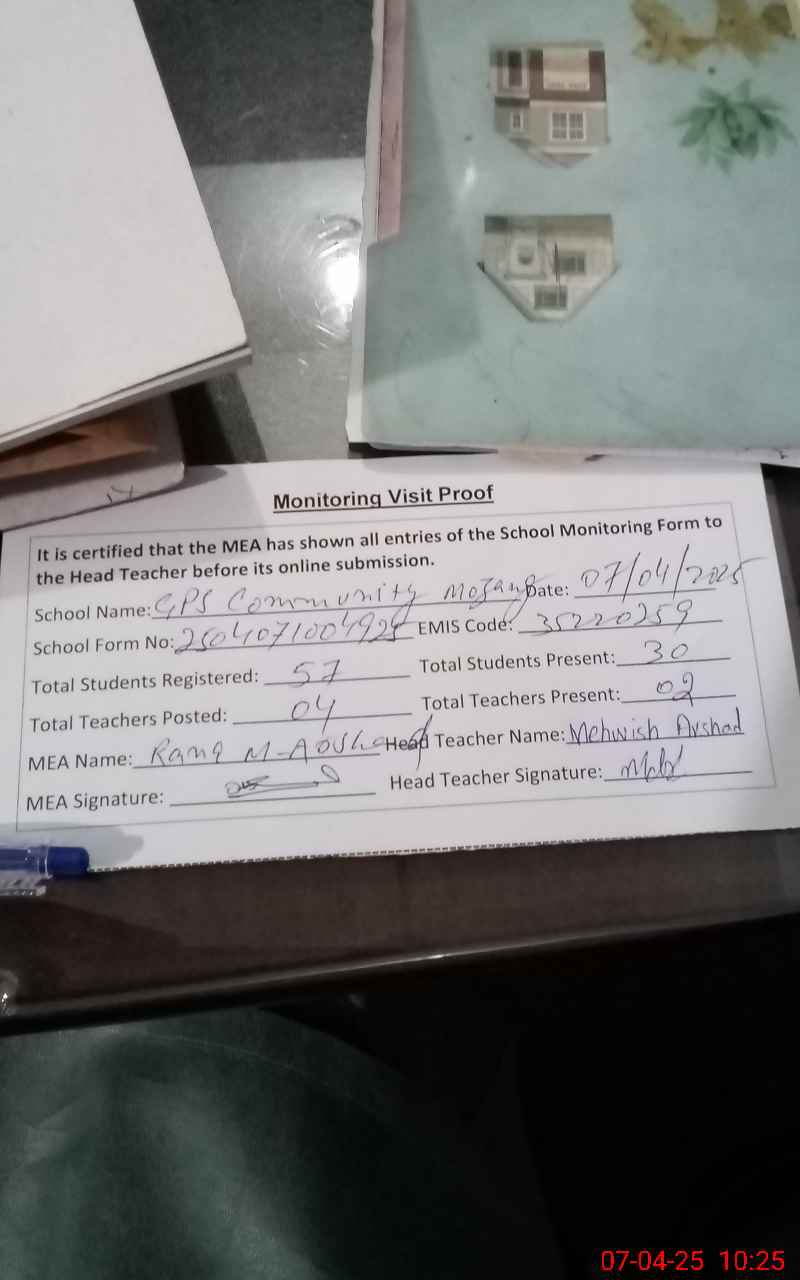 Monitoring Visit Proof
It is certified that the MEA has shown all entries of the School Monitoring Form to
the Head Teacher before its online submission.
School Name: GPS Community Mozang Date: 07/04/2025
School Form No: 2504071004925 EMIS Code: 35220259
Total Students Registered: 57 Total Students Present: 30
Total Teachers Posted: 04 Total Teachers Present: 02
MEA Name: Rana M. Head Teacher Name: Mehwish Arshad
MEA Signature: Head Teacher Signature:
07-04-25 10:25